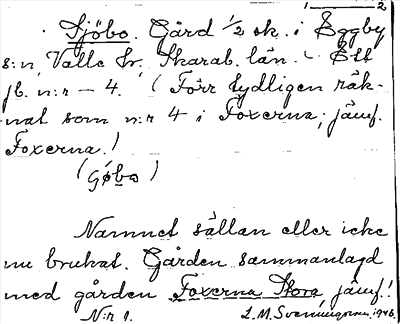 1 — 2
Sjöbo. Gård 1/2 sk. i Eggby
s:n, Valle hr, Skarab. län. Ett
jb. n:r — 4. (Förr tydligen räk-
nat som n:r 4 i Foxerna; jämf.
Foxerna.)
(Göbo)
Namnet sällan eller icke
nu brukat. Gården sammanlagd
med gården Foxerna Stora, jämf.!
N:r 1. L. M. Svenungsson, 1946.